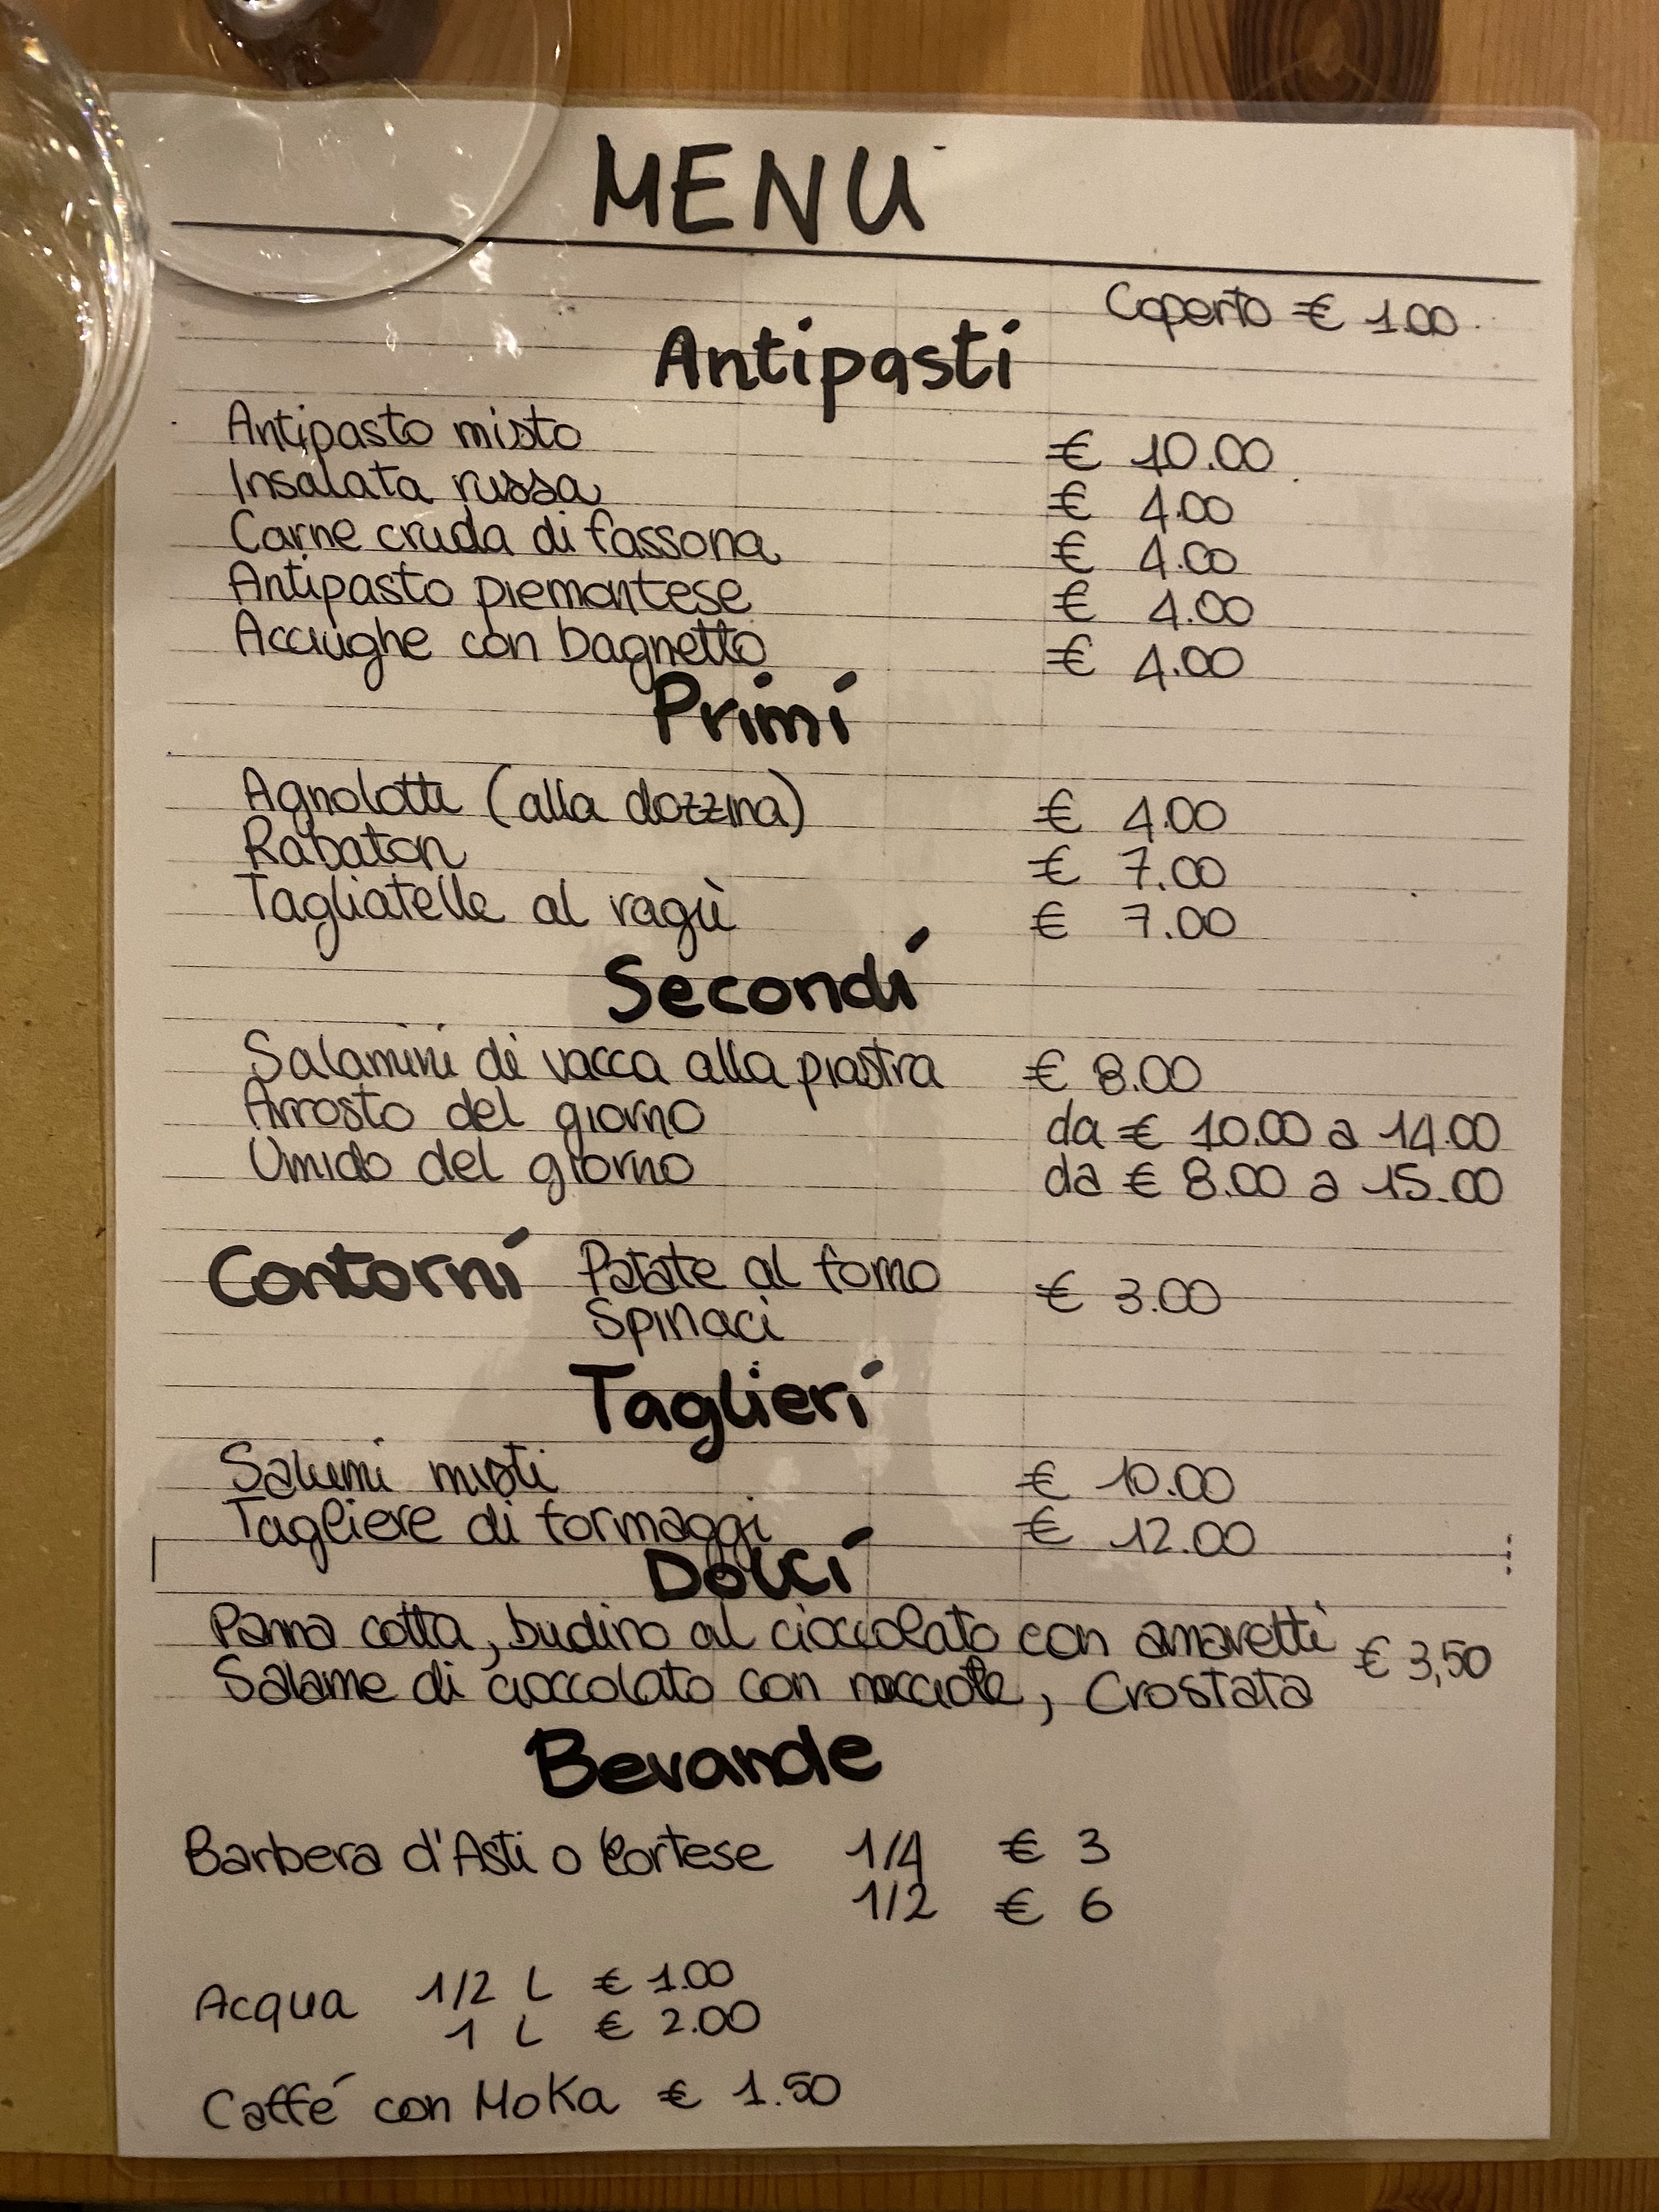 MENU
Coperto € 1.00
Antipasti
Antipasto misto € 10.00
Insalata russa € 4.00
Carne cruda di fassona € 4.00
Antipasto piemontese € 4.00
Acciughe con bagnetto € 4.00
Primi
Agnolotti (alla dozzina) € 4.00
Rabaton € 7.00
Tagliatelle al ragù € 7.00
Secondi
Salamini di vacca alla piastra € 8.00
Arrosto del giorno da € 10.00 a 14.00
Umido del giorno da € 8.00 a 15.00
Contorni Patate al forno € 3.00
Spinaci
Taglieri
Salumi misti € 10.00
Tagliere di formaggi € 12.00
Dolci
Panna cotta, budino al cioccolato con amaretti € 3,50
Salame di cioccolato con nocciole, Crostata
Bevande
Barbera d'Asti o Cortese 1/4 € 3
1/2 € 6
Acqua 1/2 L € 1.00
1 L € 2.00
Caffé con Moka € 1.50